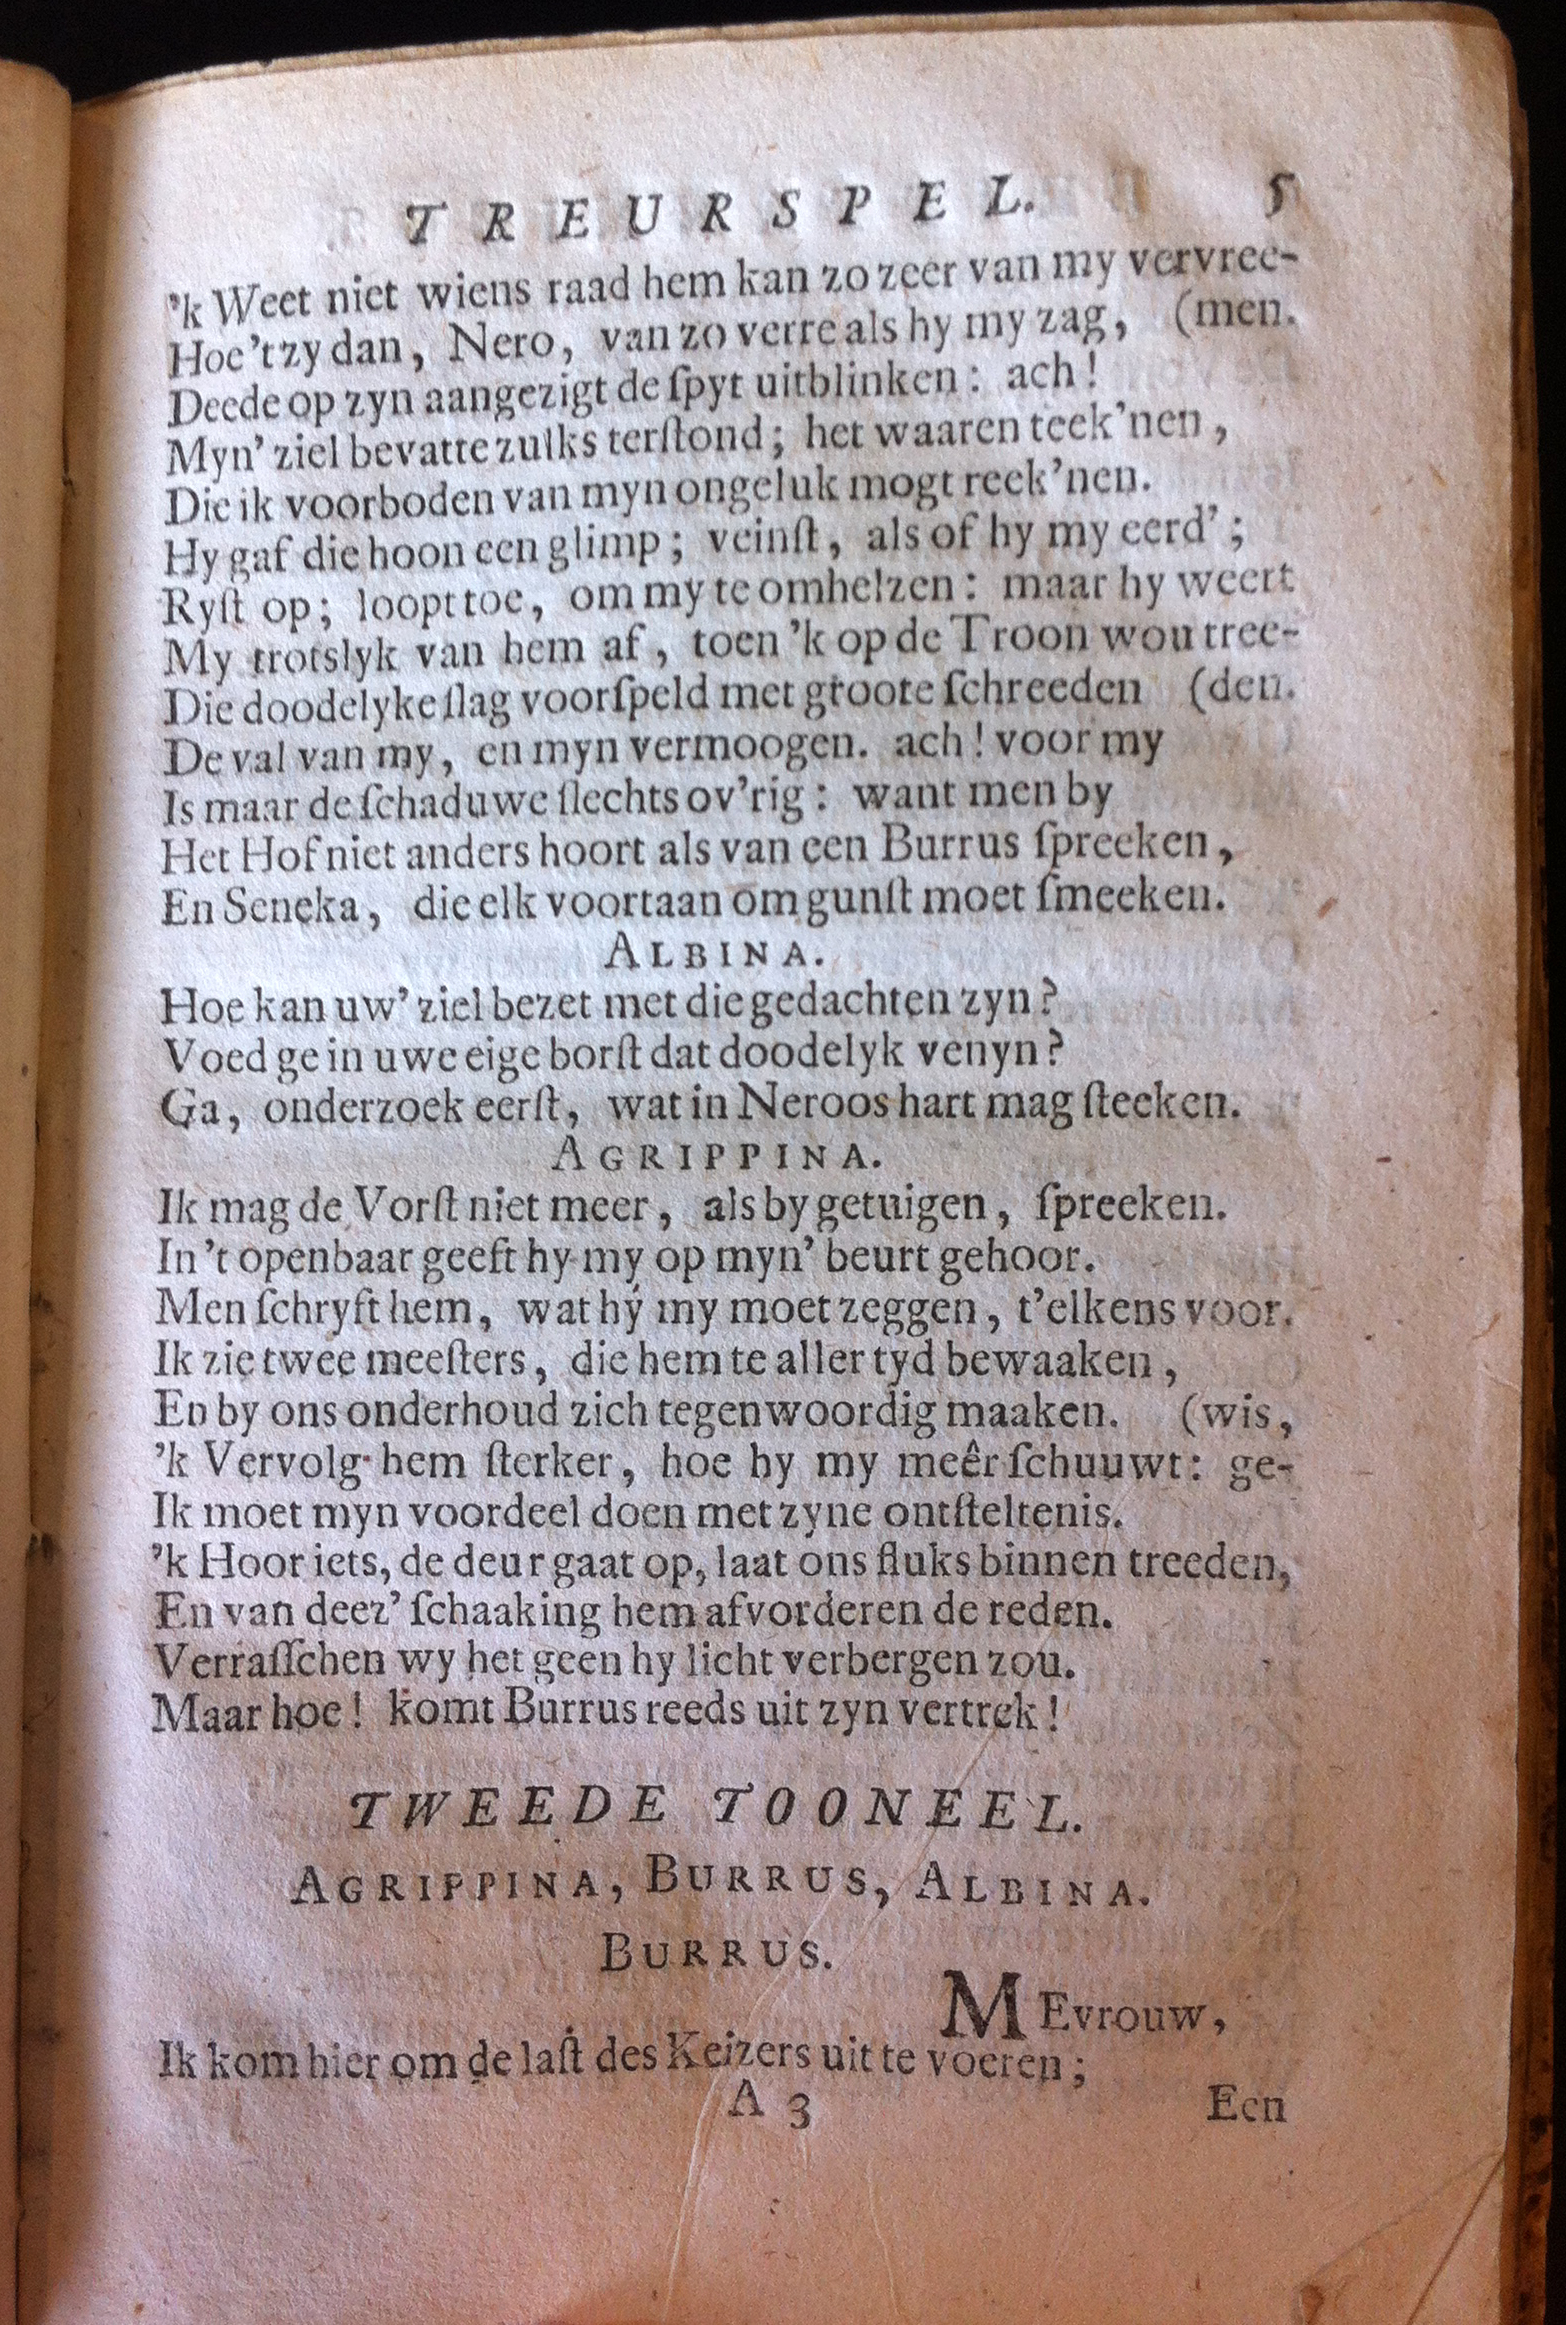 TREURSPEL. 5
'k Weet niet wiens raad hem kan zo zeer van my vervree-
Hoe 't zy dan, Nero, van zo verre als hy my zag, (men.
Deede op zyn aangezigt de ſpyt uitblinken: ach!
Myn' ziel bevatte zulks terſtond; het waaren teek'nen,
Die ik voorboden van myn ongeluk mogt reek'nen.
Hy gaf die hoon een glimp; veinſt, als of hy my eerd';
Ryſt op; loopt toe, om my te omhelzen: maar hy weert
My trotslyk van hem af, toen 'k op de Troon wou tree-
Die doodelyke ſlag voorſpeld met groote ſchreeden (den.
De val van my, en myn vermoogen. ach! voor my
Is maar de ſchaduwe ſlechts ov'rig: want men by
Het Hof niet anders hoort als van een Burrus ſpreeken,
En Seneka, die elk voortaan om gunſt moet ſmeeken.
ALBINA.
Hoe kan uw' ziel bezet met die gedachten zyn?
Voed ge in uwe eige borſt dat doodelyk venyn?
Ga, onderzoek eerſt, wat in Neroos hart mag ſteeken.
AGRIPPINA.
Ik mag de Vorſt niet meer, als by getuigen, ſpreeken.
In 't openbaar geeft hy my op myn' beurt gehoor.
Men ſchryft hem, wat hy my moet zeggen, t'elkens voor.
Ik zie twee meeſters, die hem te aller tyd bewaaken,
En by ons onderhoud zich tegenwoordig maaken. (wis,
'k Vervolg hem ſterker, hoe hy my meêr ſchuuwt: ge-
Ik moet myn voordeel doen met zyne ontſteltenis.
'k Hoor iets, de deur gaat op, laat ons fluks binnen treeden,
En van deez' ſchaaking hem afvorderen de reden.
Verraſſchen wy het geen hy licht verbergen zou.
Maar hoe! komt Burrus reeds uit zyn vertrek!
TWEEDE TOONEEL.
AGRIPPINA, BURRUS, ALBINA.
BURRUS.
MEvrouw,
Ik kom hier om de laſt des Keizers uit te voeren;
A 3 Een